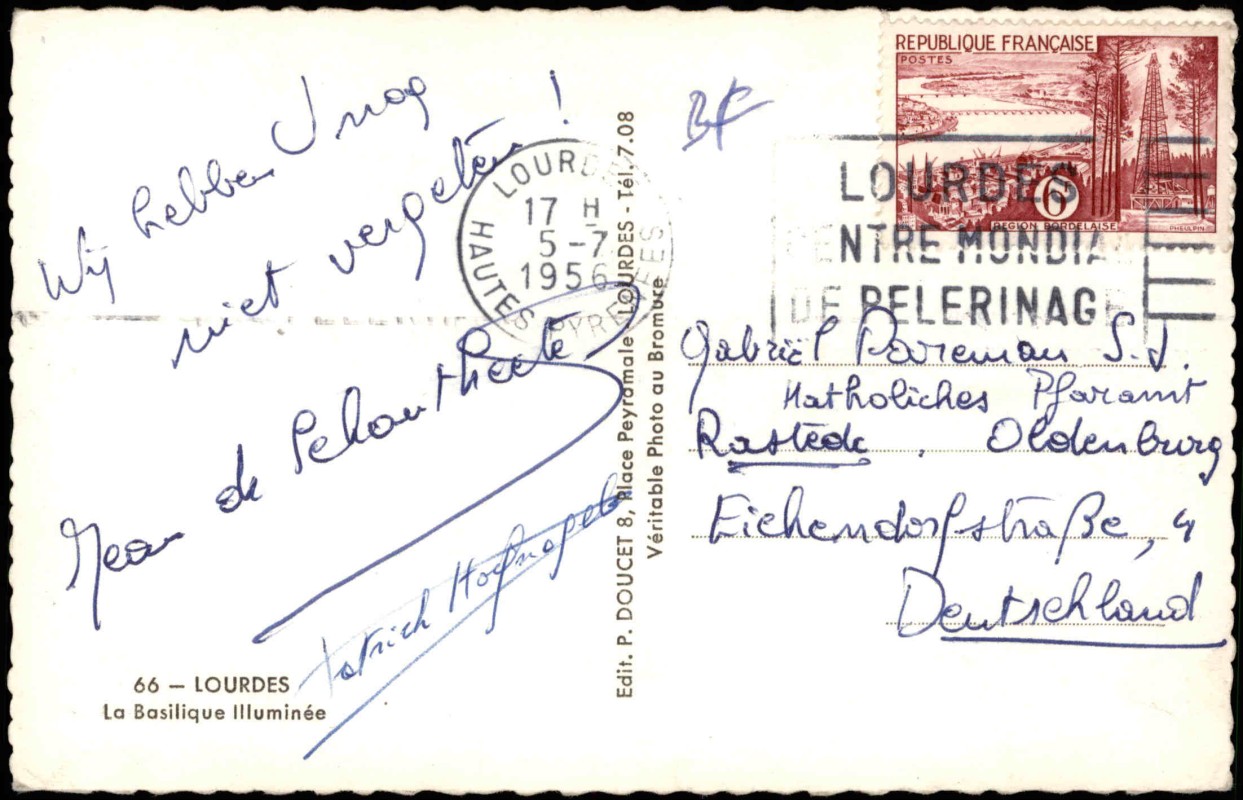 Wij hebben U nog
niet vergeten !
Jean de
Patrich
66 — LOURDES
La Basilique Illuminée
Edit. P. DOUCET 8, Place Peyramale LOURDES - Tél. 7.08
Véritable Photo au Bromure
LOURDES
17 H
5 - 7
1956
HAUTES PYRENEES
REPUBLIQUE FRANÇAISE
POSTES
6
REGION BORDELAISE
PHEULPIN
LOURDES
CENTRE MONDIAL
DE PELERINAGE
Gabriël Pareman S.J.
Katholiches Pfaramt
Rastede, Oldenburg
Eichendorfstraße, 4
Deutschland